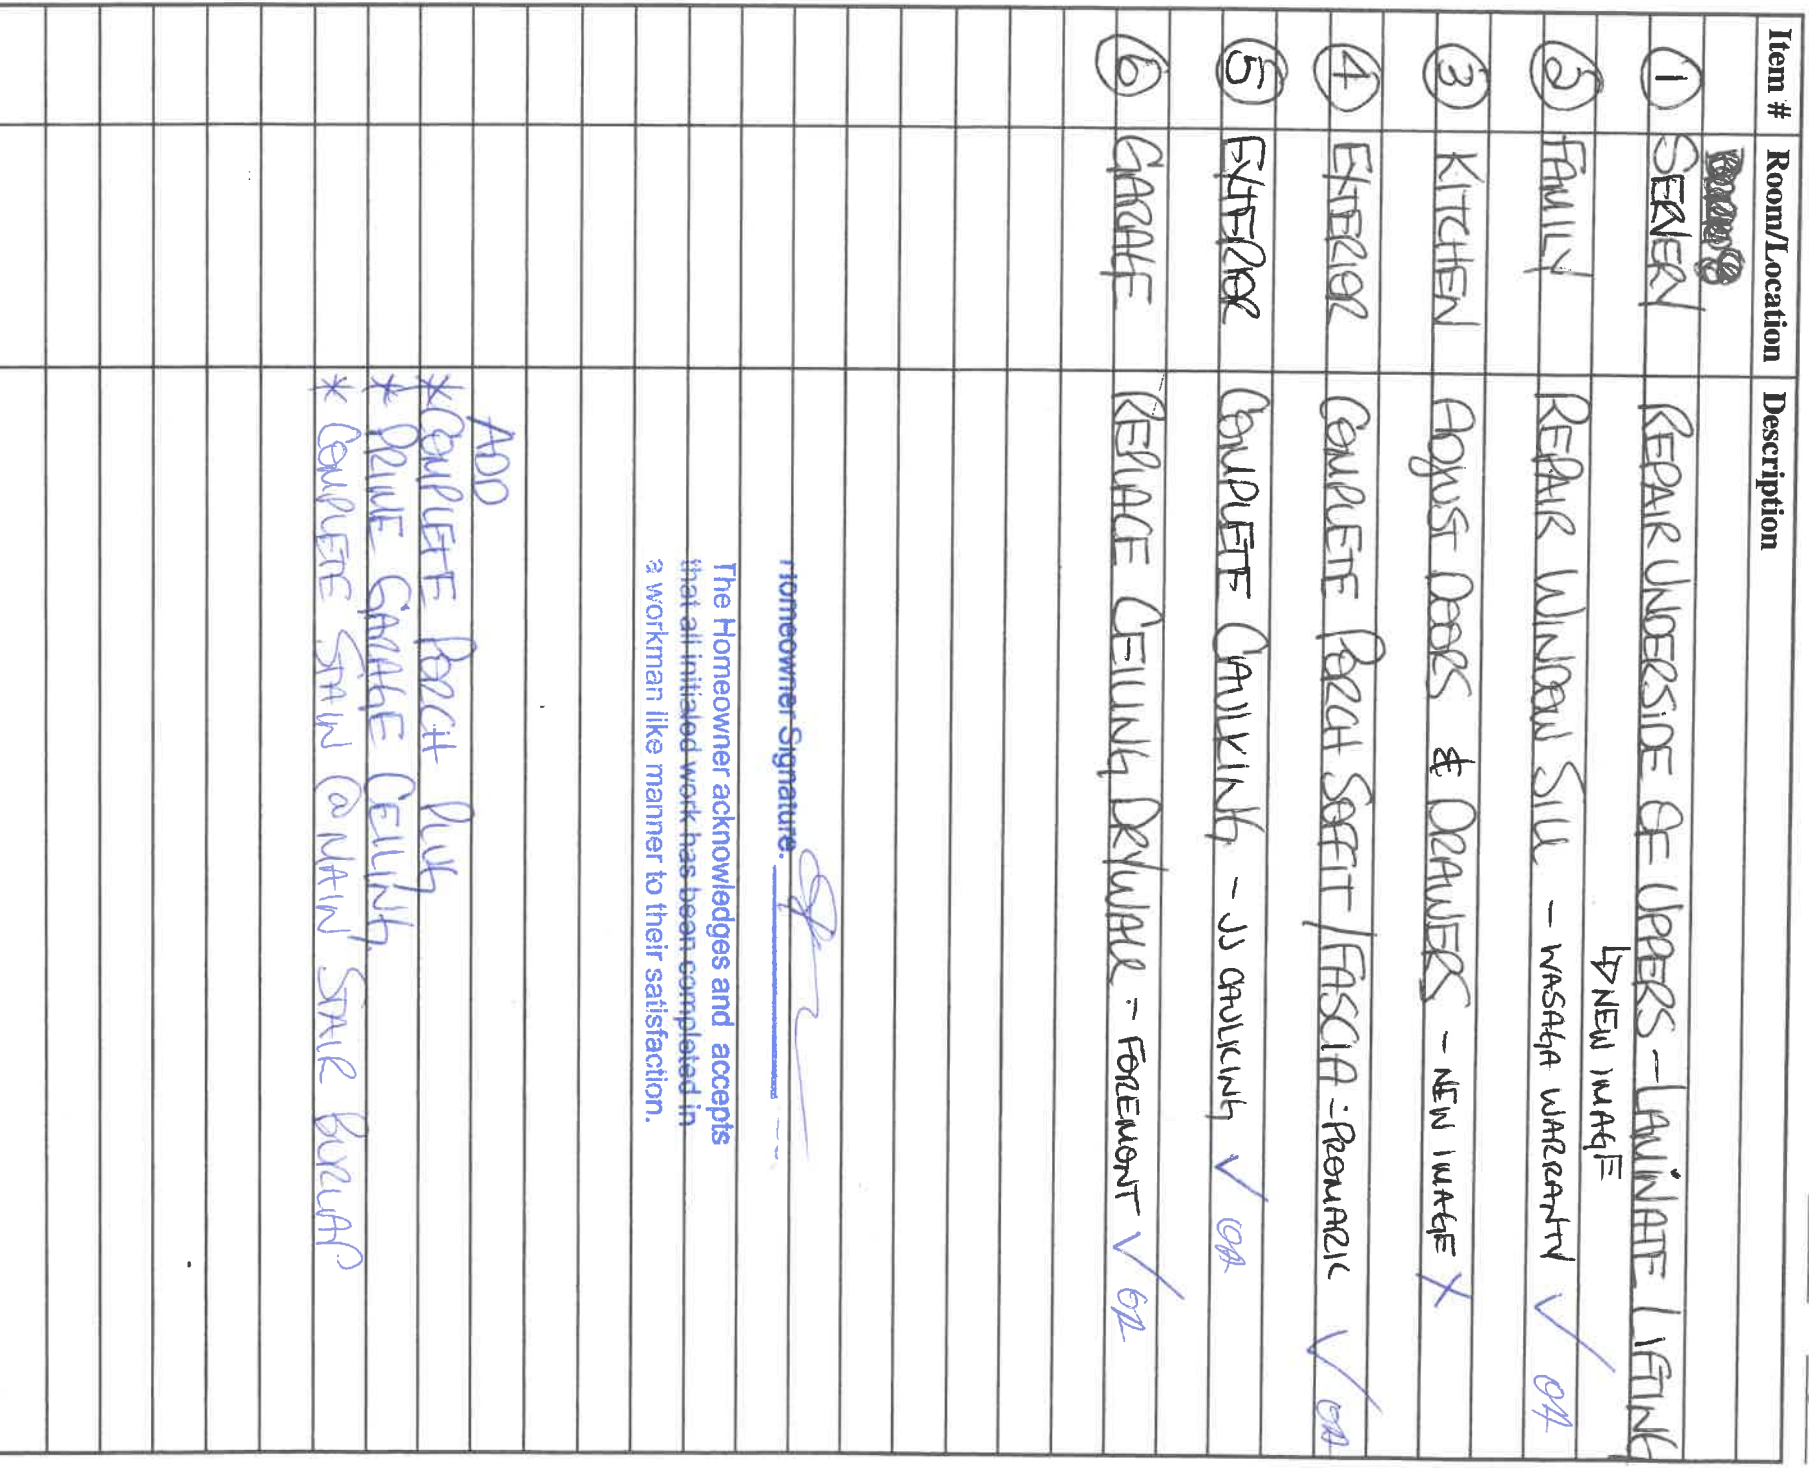 Item # Room/Location Description
1 SERVERY REPAIR UNDERSIDE OF UPPERS - LAMINATE LIFTING
↳ NEW IMAGE
2 FAMILY REPAIR WINDOW SILL - WASAGA WARRANTY ✓ OA
3 KITCHEN ADJUST DOORS & DRAWERS - NEW IMAGE X
4 EXTERIOR COMPLETE PORCH SOFFIT/FASCIA - PROMARK ✓ OA
5 EXTERIOR COMPLETE CAULKING - JJ CAULKING ✓ OA
6 GARAGE REPLACE CEILING DRYWALL - FOREMONT ✓
Homeowner Signature.
The Homeowner acknowledges and accepts
that all initialed work has been completed in
a workman like manner to their satisfaction.
ADD
* COMPLETE PORCH PLUG
* PRIME GARAGE CEILING.
* COMPLETE STAIN @ MAIN STAIR BURLAP